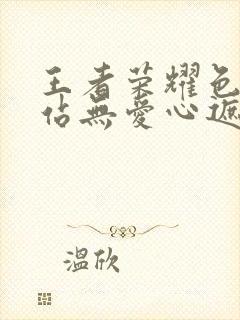 王者荣耀色
佔無愛心遮
溫欣